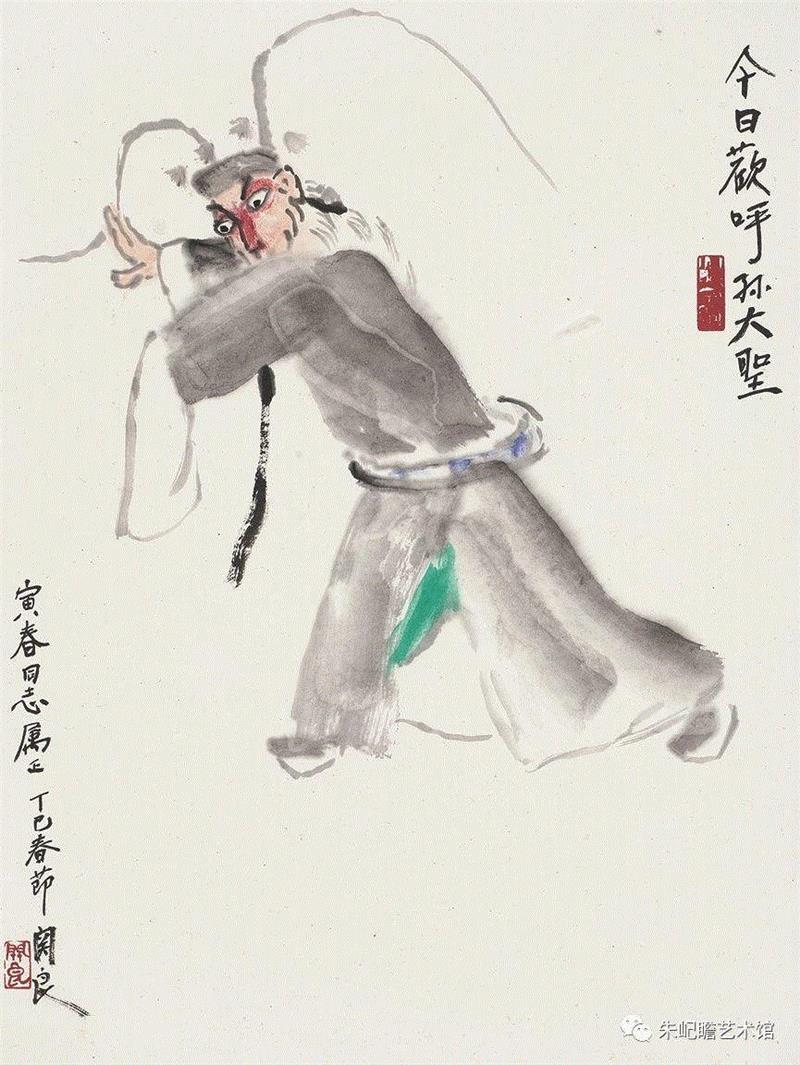 今日歡呼孫大聖
寅春同志属正 丁巳春節 関良
関良
朱屺瞻艺术馆